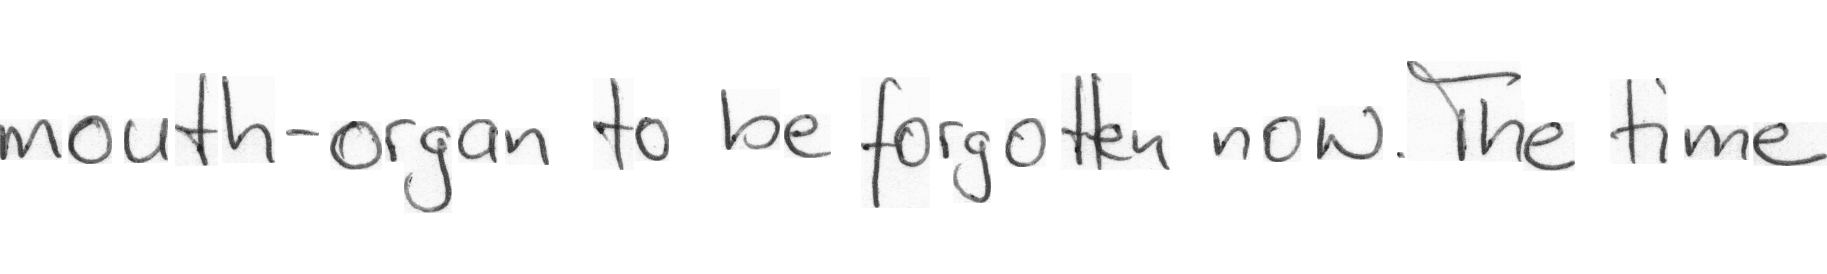 mouth-organ to be forgotten now. The time